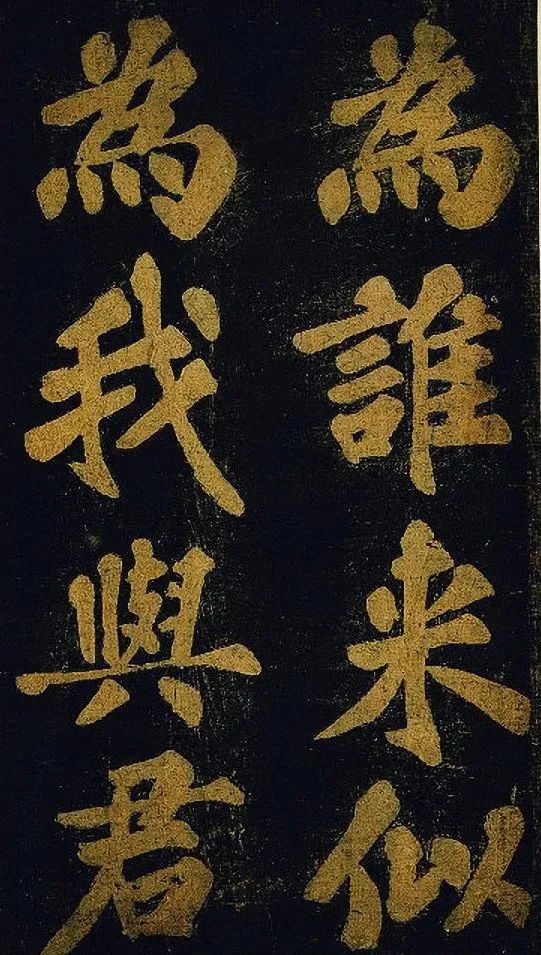 為誰来似
為我與君